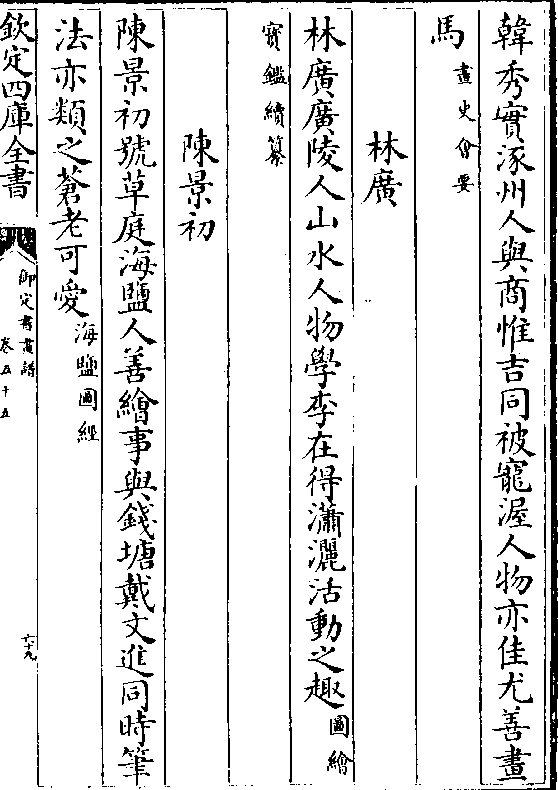 韓秀實涿州人與商惟吉同被寵渥人物亦佳尤善畫
馬畫史會要
林廣
林廣廣陵人山水人物學李在得瀟灑活動之趣圖繪
寳鑑續纂
陳景初
陳景初號草庭海鹽人善繪事與錢塘戴文進同時筆
法亦類之蒼老可愛海鹽圖經
欽定四庫全書
御定書畫譜
卷五十五
六十九